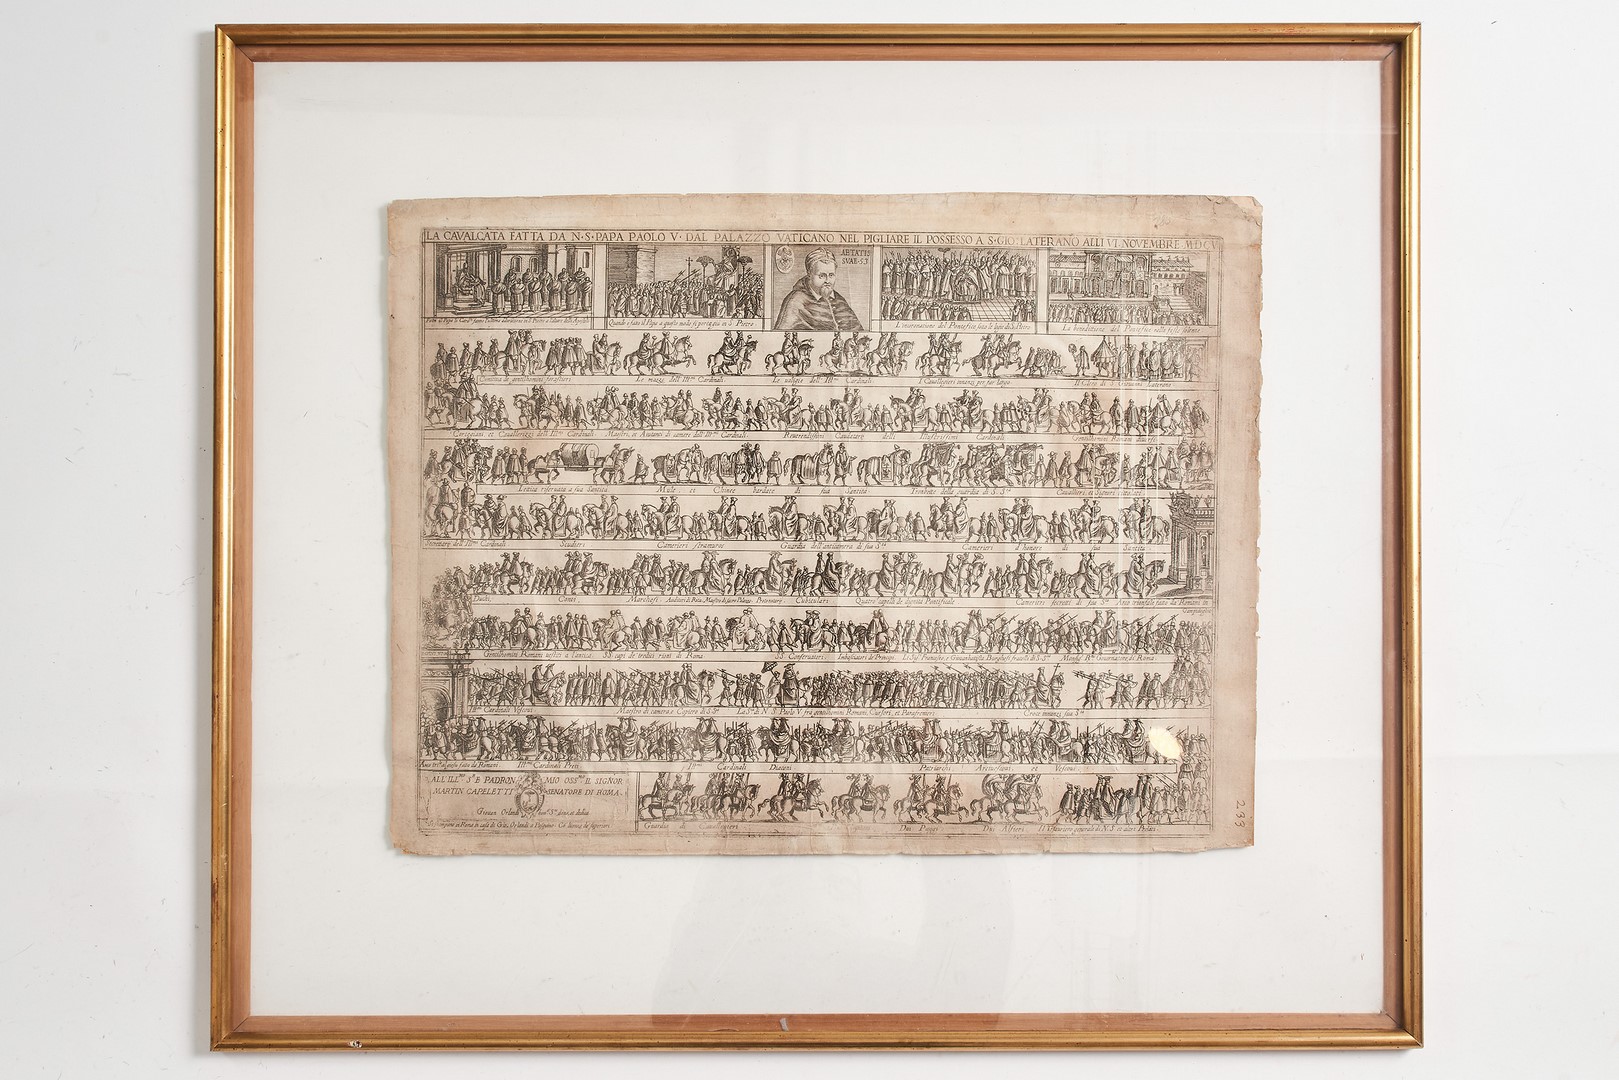 LA CAVALCATA FATTA DA N·S·PAPA PAOLO V· DAL PALAZZO VATICANO NEL PIGLIARE IL POSSESSO A S·GIO: LATERANO ALLI VI NOVEMBRE MDCV
AETATIS
SVAE·53
Quando è fatto il Papa a questo modo si porta giù in S. Pietro
L'incoronatione del Pontefice sotto le logie di S. Pietro
La benedittione del Pontefice nelle feste
Comitiva de gentilhomini forastieri
Le mazze dell' Ill.mi Cardinali
Le valigie dell' Ill.mi Cardinali
I Cavalleggieri innanzi per far largo
Il Clero di S. Giovanni Laterano
Cortegiani, et Cavallerizzi dell Ill.mi Cardinali
Maestri, et Aiutanti di camera dell' Ill.mi Cardinali
Reverendissimi Caudatarij delli Illustrissimi Cardinali
Gentilhomini Romani diversi
Letica riservata a sua Santita
Mule et Chinee bardate di sua Santita
Trombette della guardia di S. S.ta
Cavallieri, et Signori titolati
Secretarij dell' Ill.mi Cardinali
Scudieri
Camerieri stramuros
Guardia dell'anticamera di sua S.ta
Camerieri d'honore di sua Santita
Duchi
Conti
Marchesi
Cubiculari
Quatro capelli de dignità Pontificale
Camerieri secreti di sua S.ta
Arco trionfale fatto da Romani in
Campidoglio
Gentilhomini Romani vestiti a l'antica
SS. capi de tredici rioni di Roma
SS. Conservatori
Imbasciatori de Prencipi
Governatore di Roma
Cardinali Vescovi
Maestro di camera e Copiero di S. S.ta
La S.ta di N. S. Paolo V. fra gentilhomini Romani, Cursori, et Parafrenieri
Croce innanzi sua S.ta
Ill.mi Cardinali Preti
Ill.mi Cardinali Diaconi
Patriarchi Arcivescovi et Vescovi
ALL'ILL.mo S.r E PADRON MIO OSS.mo IL SIGNOR
MARTIN CAPELETTI SENATORE DI ROMA
Giovan Orlandi
Guardia di Cavalleggieri
Dui Paggi
Dui Alfieri
233